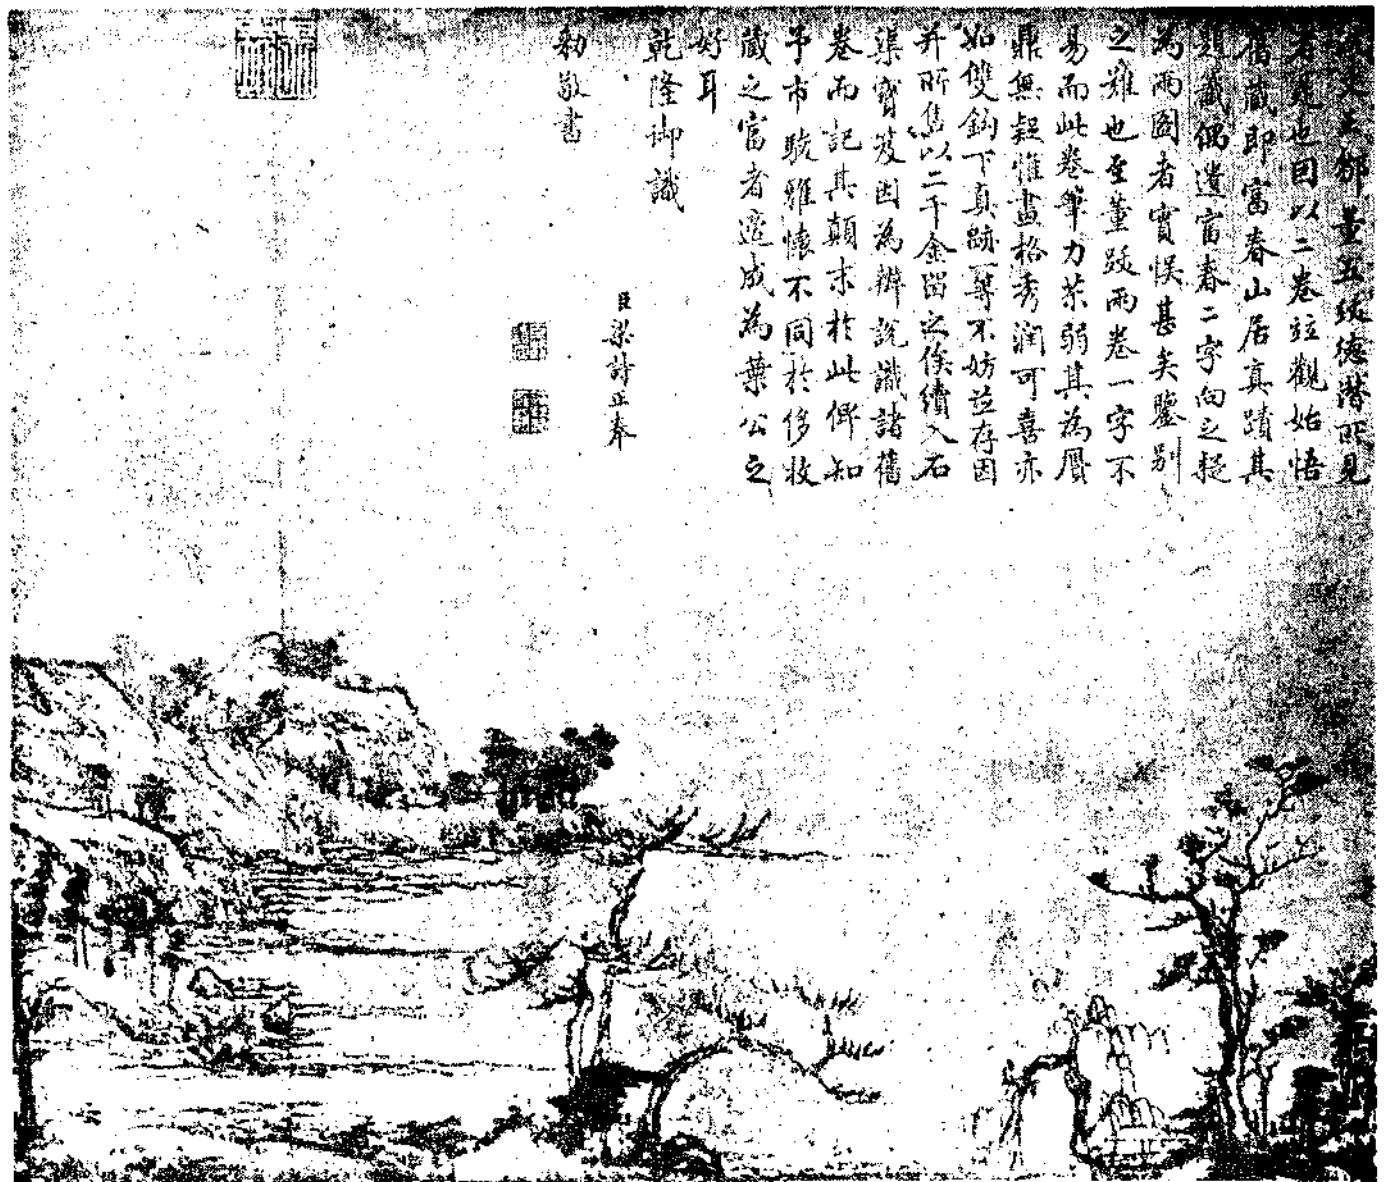 文王鄒董五跋德潛所見
者是也因以二卷竝觀始悟
舊藏即富春山居真蹟其
題籤偶遺富春二字向之疑
為兩圖者實悮甚矣鑒別
之難也至董跋兩卷一字不
易而此卷筆力苶弱其為贋
鼎無疑惟畫格秀潤可喜亦
如雙鈎下真跡一等不妨並存因
并所售以二千金留之俟續入石
渠寶笈因為辨說識諸舊
卷而記其顛末於此俾知
予市駿雅懷不同於侈收
藏之富者適成為葉公之
好耳
乾隆御識
臣梁詩正奉
勅敬書